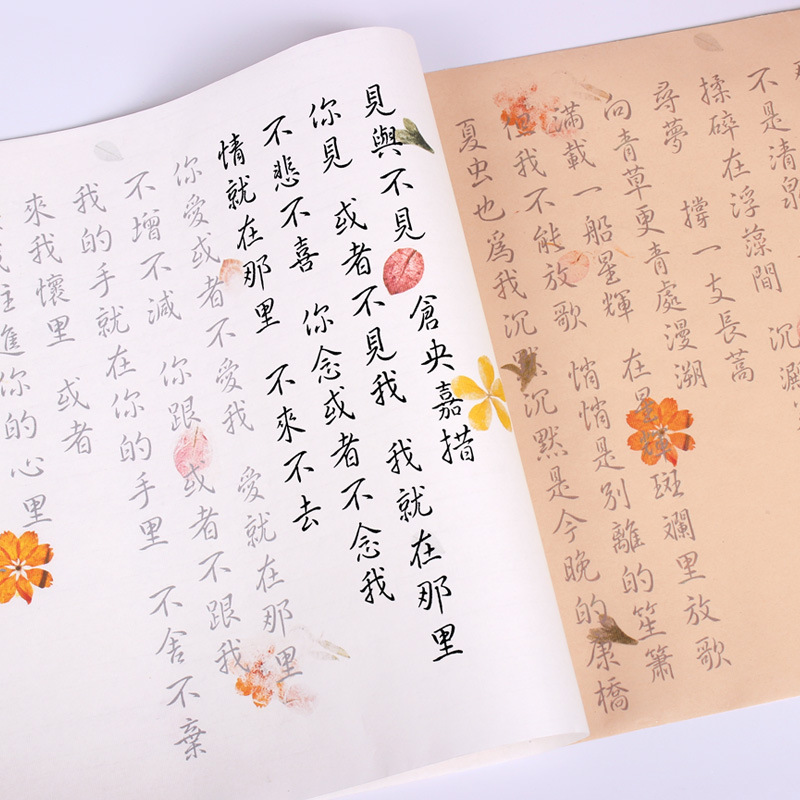 不是清泉
揉碎在浮藻間 沉澱
尋夢 撐一支長蒿
向青草更青處漫溯
滿載一船星輝 在星輝斑斕里放歌
但我不能放歌 悄悄是別離的笙簫
夏虫也爲我沉默 沉默是今晚的康橋
見與不見 倉央嘉措
你見 或者不見我 我就在那里
不悲不喜 你念或者不念我
情就在那里 不來不去
你愛或者不愛我 愛就在那里
不增不減 你跟或者不跟我
我的手就在你的手里 不舍不棄
來我懷里 或者
我住進你的心里